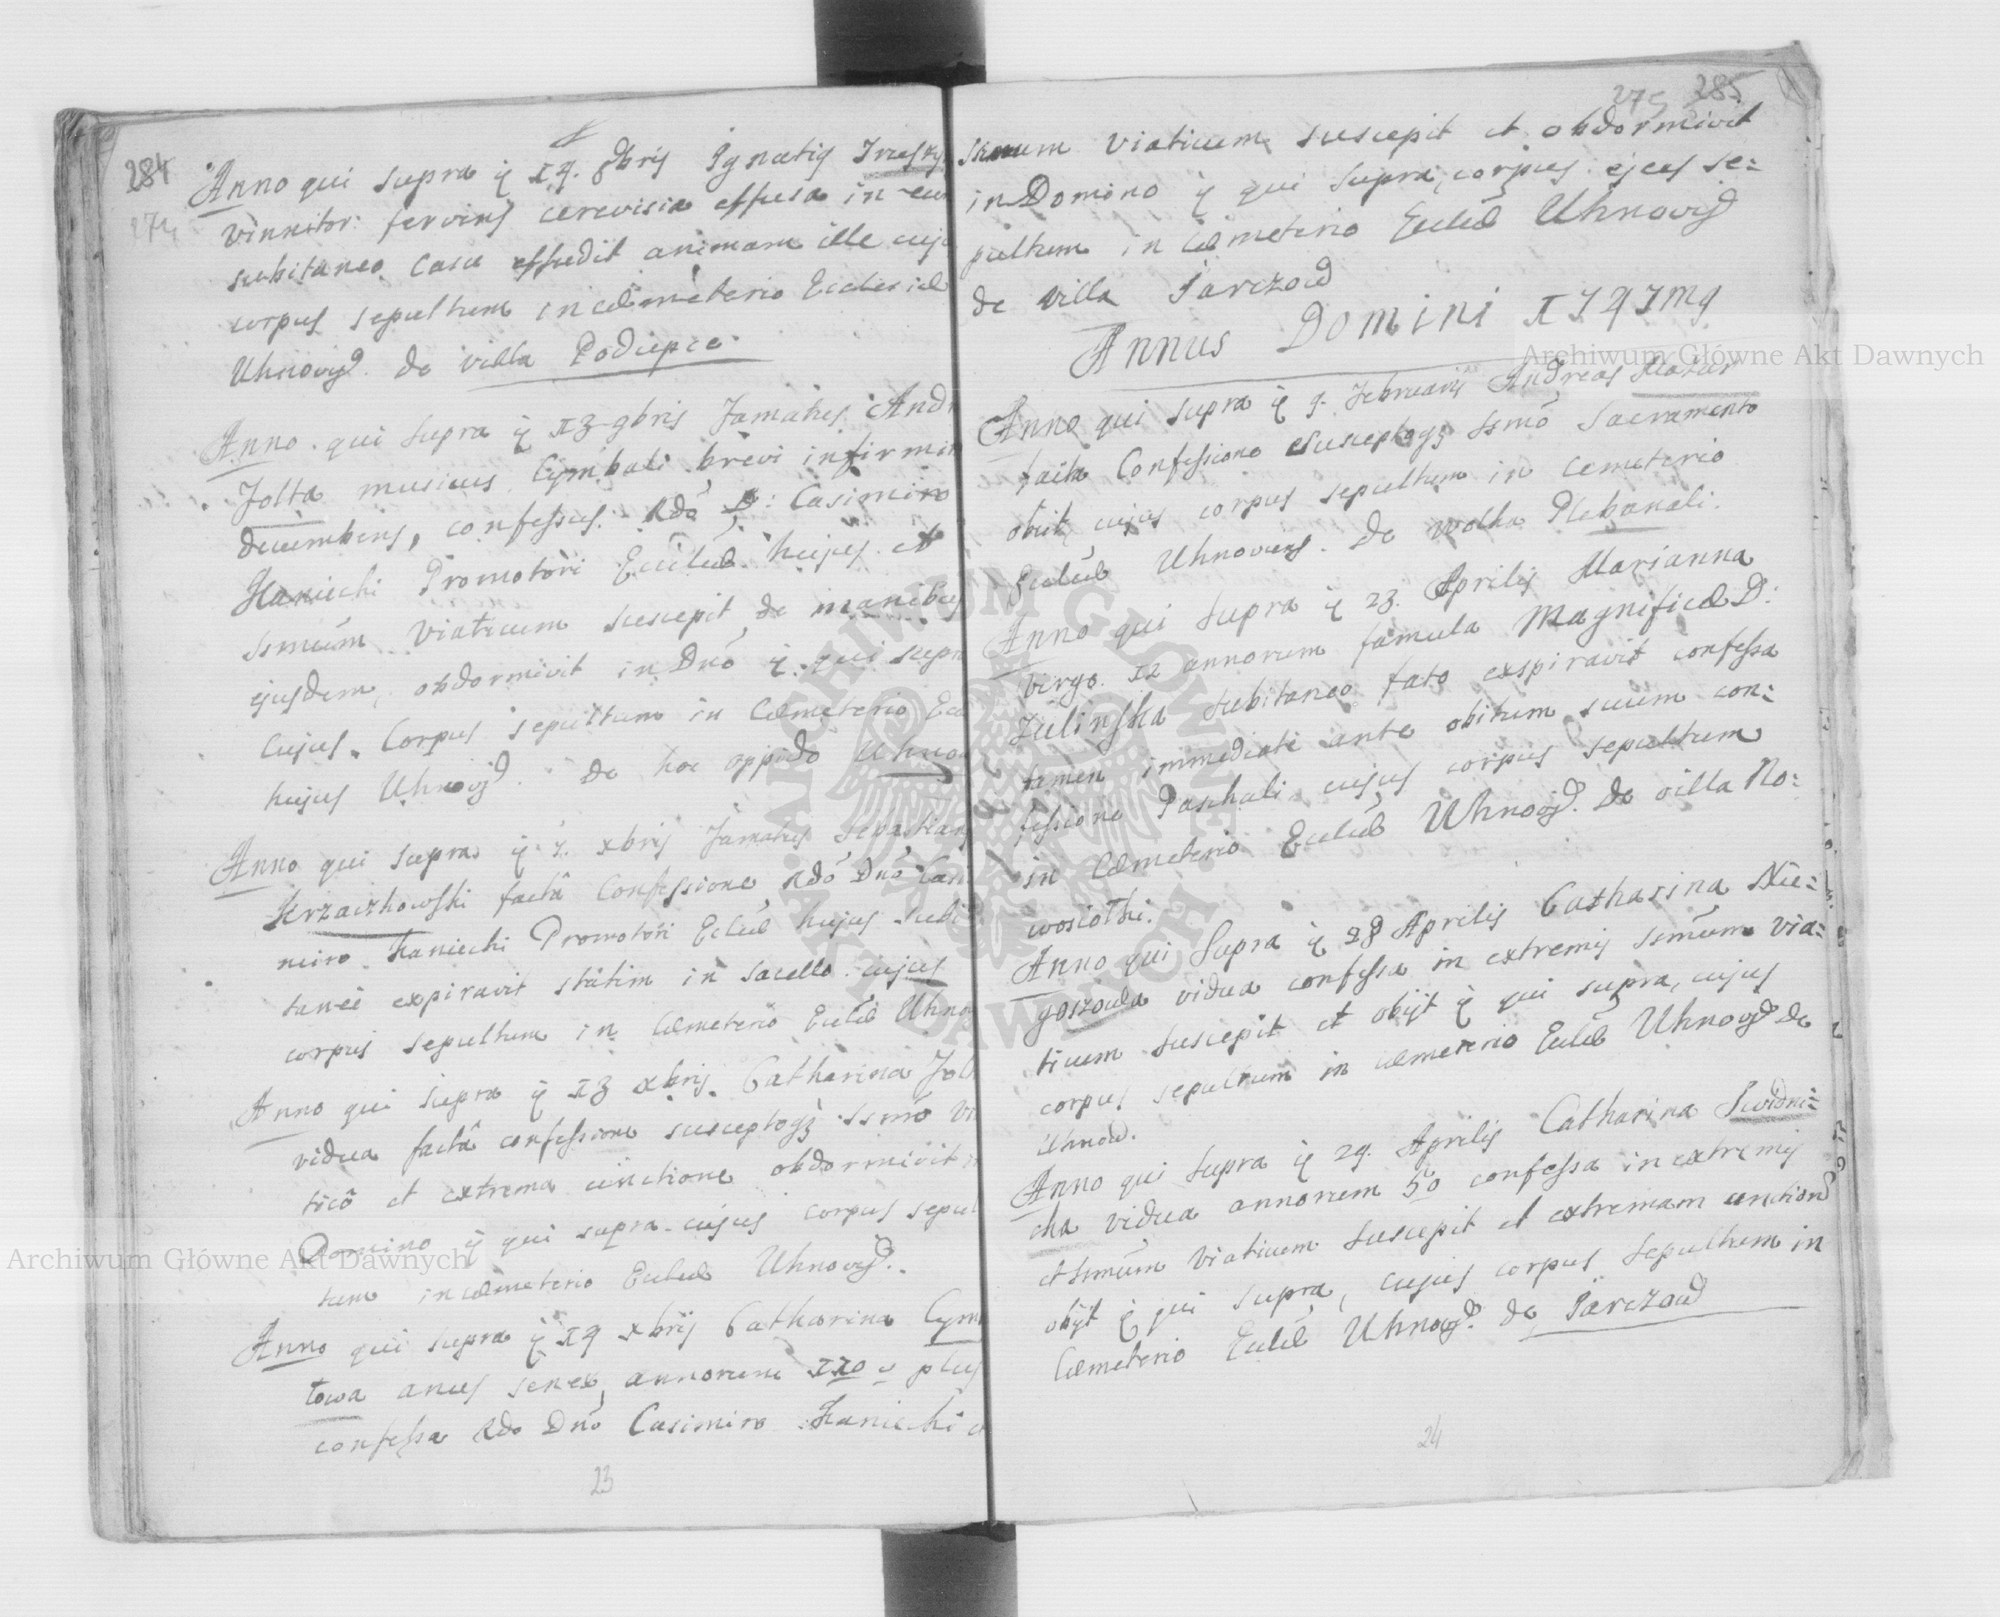 284
274
Anno qui supra ę 19. 8bris Ignatiq
vinnitor: fervens cerevisia effusa in eum
subitaneo casu effudit animam ille cuju
corpus sepultum in cæmeterio Ecclesiæ
Uhnovęd. de villa Podiepce.
Anno qui supra ę 13 9bris Famatus Andr
Jolta musicus Cymbali brevi infirmit
decumbens, confessus Rdō D: Casimiro
Haniecki Promotori Eccleæ hujus et
Ssmum Viaticum suscepit de manibus
ejusdem, obdormivit in Dnō ę qui supr
Cujus Corpus sepultum in Cæmeterio Ecc
hujus Uhnovęd. De hoc oppido Uhnov
Anno qui supra ę 7. xbris Famatus Sebastianq
Krzaczkowski factâ Confessione Rdō Dnō Casi
miro Haniecki Promotori Eclæ hujus subi
taneè expiravit stätim in sacello cujus
corpus sepultum in Cæmeterio Ecclæ Uhnov
Anno qui supra ę 13 xbris Catharina Jolt
vidua factâ confessione susceptoqȝ ssmō Vi
ticō et extrema unctione obdormivit in
Domino ę qui supra cujus corpus sepul
tum in cæmeterio Eccleæ Uhnovęd.
Anno qui supra ę 19 xbris Catharina Cym
towa anus senex annorum 110 plus
confessa Rdo Dnō Casimiro Haniecki et
23
275 285
Ssmum Viaticum suscepit et obdormivit
in Domino ę qui supra, corpus ejus se:
pultum in Cæmeterio Eccleæ Uhnovęd
de villa Tarczow
Annus Domini 1797mq
Anno qui supra ę 9. Februarij Andreas Mazur
facta Confessione Susceptoqȝ Ssmō Sacramento
obiit, cujus corpus sepultum in Cemeterio
Eccleæ Uhnoviens. De Wolka Plebanali.
Anno qui supra ę 23. Aprilis Marianna
virgo 12 annorum famula Magnificæ D:
Zulinska subitaneo fato exspiravit confessa
tamen immediatè ante obitum suum con:
fessione Paschali cujus corpus sepultum
in Cæmeterio Eccleæ Uhnovęd. De villa No:
wosiolki.
Anno qui Supra ę 28 Aprilis Catharina Nie:
goszowa vidua confessa in extremis Ssmum Via:
ticum suscepit et obijt ę qui supra, cujus
corpus sepultum in cæmeterio Eccleæ Uhnovęd de
Uhnow.
Anno qui supra ę 29. Aprilis Catharina Swidni:
cka vidua annorum 50 confessa in extremis
et Ssmum Viaticum suscepit et extremam unctionē
obijt ę qui supra, cujus corpus sepultum in
Cæmeterio Eccleæ Uhnovęd. de Tarczow
24
Archiwum Główne Akt Dawnych
Archiwum Główne Akt Dawnych
ARCHIWUM GŁÓWNE AKT DAWNYCH